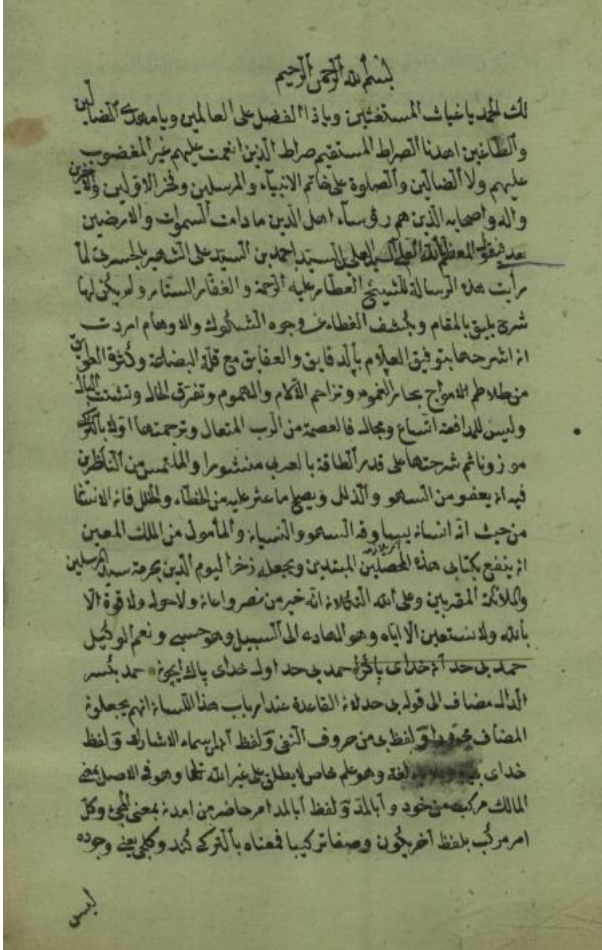 بسم الله الرحمن الرحيم
لك الحمد يا غياث المستغثين ويا ذا الفضل على العالمين ويا مهدى الضالين
والطاغين اهدنا الصراط المستقيم صراط الذين انعمت عليهم غير المغضوب
عليهم ولا الضالين والصلوة على خاتم الانبياء والمرسلين وفخر الاولين والآخرين
واله واصحابه الذين هم رؤساء اهل الدين ما دامت السموات والارضين
بعد فيقول المعظم لله السيد احمد بن السيد على الشهير لما
رأيت هذه الرسالة للشيخ العطار عليه الرحمة والغفار الستار ولم يكن لها
شرح يليق بالمقام ويكشف الغطاء عن وجوه الشكوك والاوهام اردت
ان اشرحها بتوفيق العلام بالدقايق والعقايق مع قلة البضاعة وكثرة العوايق
من تلاطم الامواج بحار الغموم وتزاحم الآلام والهموم وتفرق الحال وتشتت البال
وليس للمدافعة اتساع ومجال فالعصمة من الرب المتعال وترجمتها اولا بالتركى
موزونا ثم شرحتها على قدر الطاقة بالعربى منشورا والملتمس من الناظرين
فيه ان يعفو من السهو والذلل ويصلح ما عثر عليه من الخطاء والخلل فان الانسان
من حيث انه انسان يساوقه السهو والنسيان والمأمول من الملك المعين
ان ينفع بكتابى هذه المحصلين المبتدين ويجعله ذخرا ليوم الدين بحرمة سيد المرسلين
والملائكة المقربين وعلى الله التكلان انه خير من نصر واعان ولا حول ولا قوة الا
بالله ولا نستعين الا اياه وهو الهادى الى السبيل وهو حسبى ونعم الوكيل
حمد بى حد آن خداى پاكرا حمد بى حد اول خداى پاك ايچون حمد بكسر
الدال مضاف الى قوله بى حد لان القاعدة عند ارباب هذا اللسان انهم يجعلون
المضاف ولفظ بى من حروف النفى ولفظ آن اسماء الاشارات ولفظ
خداى لغة وهو علم خاص لا يطلق على غير الله تعالى وهو فى الاصل بمعنى
المالك مركب من خود وآ بالمد ولفظ آ بالمد امر حاضر من امدن بمعنى المجئ وكل
امر مركب بلفظ آخر يكون وصفا تركيبا فمعناه بالتركى كندو كلجى يعنى وجوده
ليس